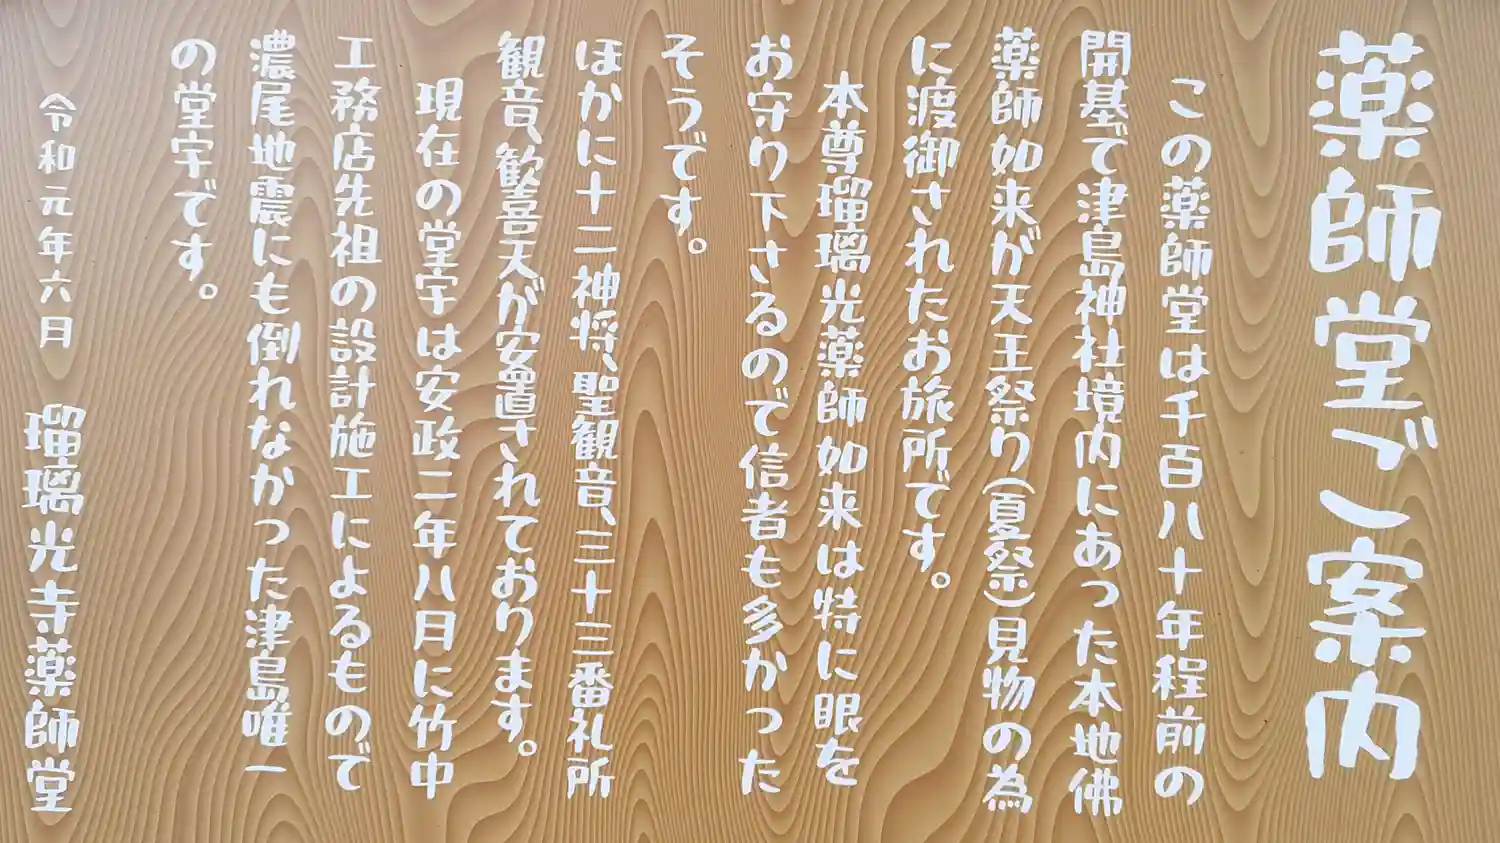 薬師堂ご案内
この薬師堂は千百八十年程前の
開基で津島神社境内にあった本地佛
薬師如来が天王祭り(夏祭)見物の為
に渡御されたお旅所です。
本尊瑠璃光薬師如来は特に眼を
お守り下さるので信者も多かった
そうです。
ほかに十二神将、聖観音、三十三番礼所
観音、歓喜天が安置されております。
現在の堂宇は安政二年八月に竹中
工務店先祖の設計施工によるもので
濃尾地震にも倒れなかった津島唯一
の堂宇です。
令和元年六月 瑠璃光寺薬師堂